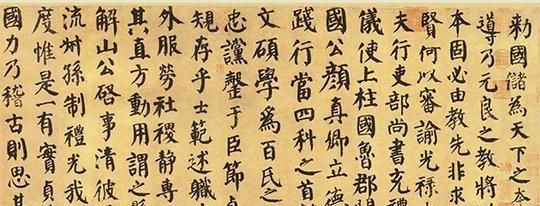 勅國儲為天下之本
導乃元良之教將
本固必由教先非求
賢何以審諭光祿
夫行吏部尚書充禮
儀使上柱國魯郡開
國公顏真卿立德
踐行當四科之首
文碩學為百氏之
忠讜罄于臣節貞
規存乎士範述職
外服勞社稷静專
其直方動用謂之
解山公啓事清彼
流叔孫制禮光我
度惟是一有實貞
國力乃稽古則思其